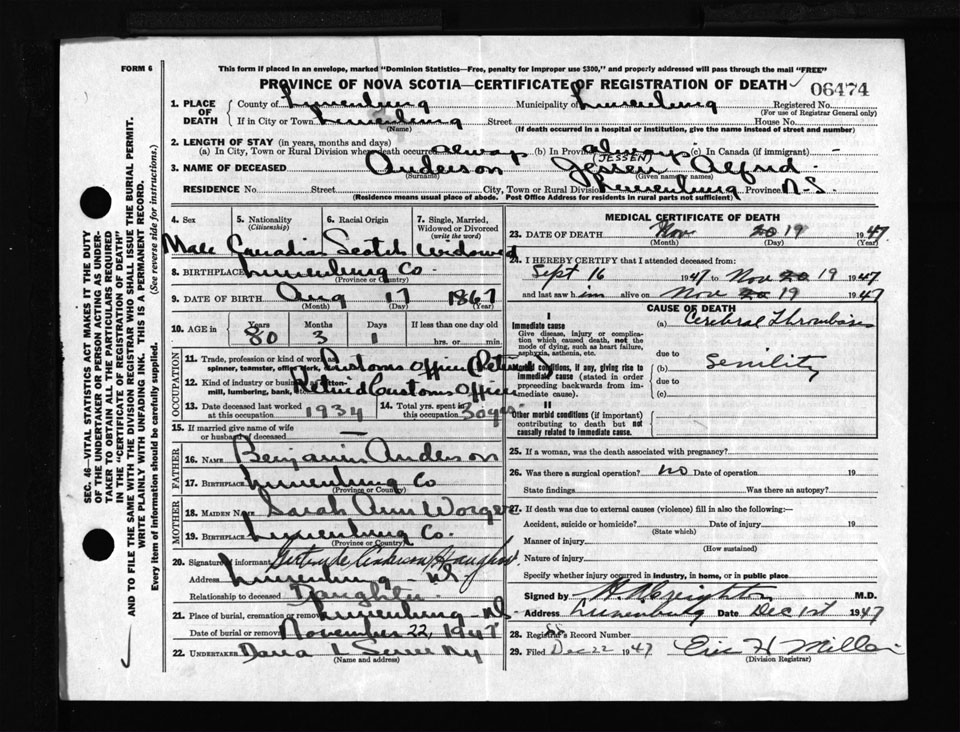 FORM 6
This form if placed in an envelope, marked "Dominion Statistics—Free, penalty for improper use $300," and properly addressed will pass through the mail "FREE"
PROVINCE OF NOVA SCOTIA—CERTIFICATE OF REGISTRATION OF DEATH
06474
1. PLACE OF DEATH
County of Lunenburg Municipality of Lunenburg Registered No.
(For use of Registrar General only)
If in City or Town Lunenburg Street House No.
(Name) (If death occurred in a hospital or institution, give the name instead of street and number)
2. LENGTH OF STAY (in years, months and days)
(a) In City, Town or Rural Division where death occurred always (b) In Province always (c) In Canada (if immigrant) -
3. NAME OF DECEASED Anderson Jessen Alfred
(JESSEN)
(Surname) (Given name or names)
RESIDENCE No. Street City, Town or Rural Division Lunenburg Province N.S.
(Residence means usual place of abode. Post Office Address for residents in rural parts not sufficient)
4. Sex
5. Nationality (Citizenship)
6. Racial Origin
7. Single, Married, Widowed or Divorced (write the word)
Male Canadian Scotch Widowed
8. BIRTHPLACE Lunenburg Co
(Province or County)
9. DATE OF BIRTH Aug 17 1867
(Month) (Day) (Year)
10. AGE in Years Months Days If less than one day old
80 3 1 hrs. or min.
OCCUPATION
11. Trade, profession or kind of work as spinner, teamster, office clerk, Customs Officer (Retired)
12. Kind of industry or business, cotton-mill, lumbering, bank, Retired Customs Officer
13. Date deceased last worked at this occupation 1934
14. Total yrs. spent in this occupation 30 yrs
15. If married give name of wife or husband of deceased —
FATHER
16. NAME Benjamin Anderson
17. BIRTHPLACE Lunenburg Co
(Province or County)
MOTHER
18. MAIDEN NAME Sarah Ann
19. BIRTHPLACE Lunenburg Co.
(Province or County)
20. Signature of informant Gertrude Anderson
Address Lunenburg NS
Relationship to deceased Daughter
21. Place of burial, cremation or removal Lunenburg NS
Date of burial or removal November 22, 1947
22. UNDERTAKER
(Name and address)
MEDICAL CERTIFICATE OF DEATH
23. DATE OF DEATH Nov 20 19 1947
(Month) (Day) (Year)
24. I HEREBY CERTIFY that I attended deceased from:
Sept 16 1947 to Nov 20 19 1947
and last saw him alive on Nov 20 19 1947
CAUSE OF DEATH
I
Immediate cause
Give disease, injury or complication which caused death, not the mode of dying, such as heart failure, asphyxia, asthenia, etc.
(a) Cerebral Thrombosis
due to
Morbid conditions, if any, giving rise to immediate cause (stated in order proceeding backwards from immediate cause).
(b) Senility
due to
(c)
II
Other morbid conditions (if important) contributing to death but not causally related to immediate cause.
25. If a woman, was the death associated with pregnancy?
26. Was there a surgical operation? no Date of operation 19
State findings Was there an autopsy?
27. If death was due to external causes (violence) fill in also the following:—
Accident, suicide or homicide? Date of injury 19
(State which)
Manner of injury
(How sustained)
Nature of injury
Specify whether injury occurred in industry, in home, or in public place
Signed by H. A. Creighton M.D.
Address Lunenburg Date Dec 1st 1947
28. Registrar's Record Number
29. Filed Dec 22 1947
(Division Registrar)
SEC. 46—VITAL STATISTICS ACT MAKES IT THE DUTY
OF THE UNDERTAKER OR PERSON ACTING AS UNDER-
TAKER TO OBTAIN ALL THE PARTICULARS REQUIRED
IN THE "CERTIFICATE OF REGISTRATION OF DEATH"
AND TO FILE THE SAME WITH THE DIVISION REGISTRAR WHO SHALL ISSUE THE BURIAL PERMIT.
WRITE PLAINLY WITH UNFADING INK. THIS IS A PERMANENT RECORD.
Every item of information should be carefully supplied. (See reverse side for instructions.)